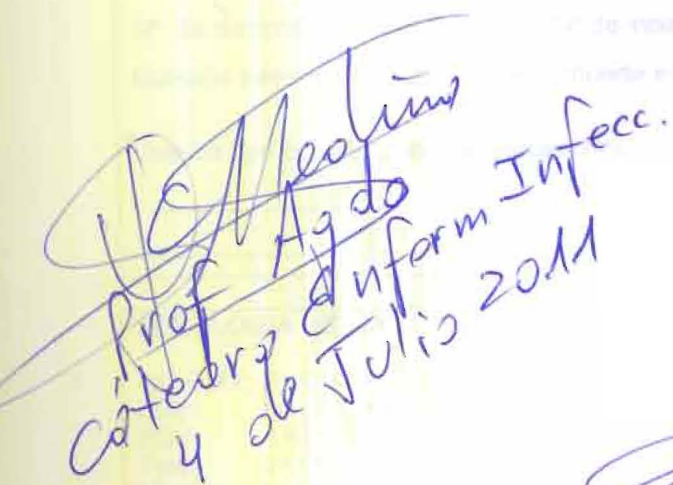 J Medina
Prof Agdo
Cátedra Enferm Infecc.
4 de Julio 2011